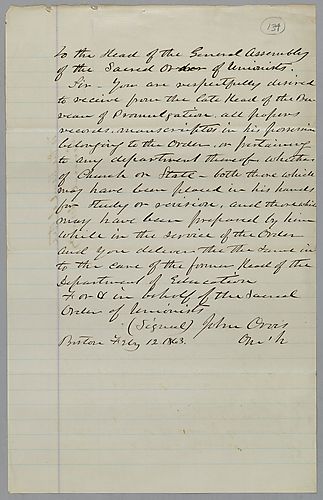 134
To the Head of the General Assembly
of the Sacred Order of Unionists.
Sir - You are respectfully desired
to receive from the late Head of the Bu-
reau of Promulgation, all papers
records, manuscriptes in his possession
belonging to the Order, or pertaining
to any department thereof whether
of Church or State - both those which
may have been placed in his hands
for study or revision, and those which
may have been prepared by him
while in the service of the Order
and you deliver the the same in
to the care of the former Head of the
Department of Education
For & in behalf of the Sacred
Order of Unionists
(Signed) John Orvis
Boston Feby 12. 1863.